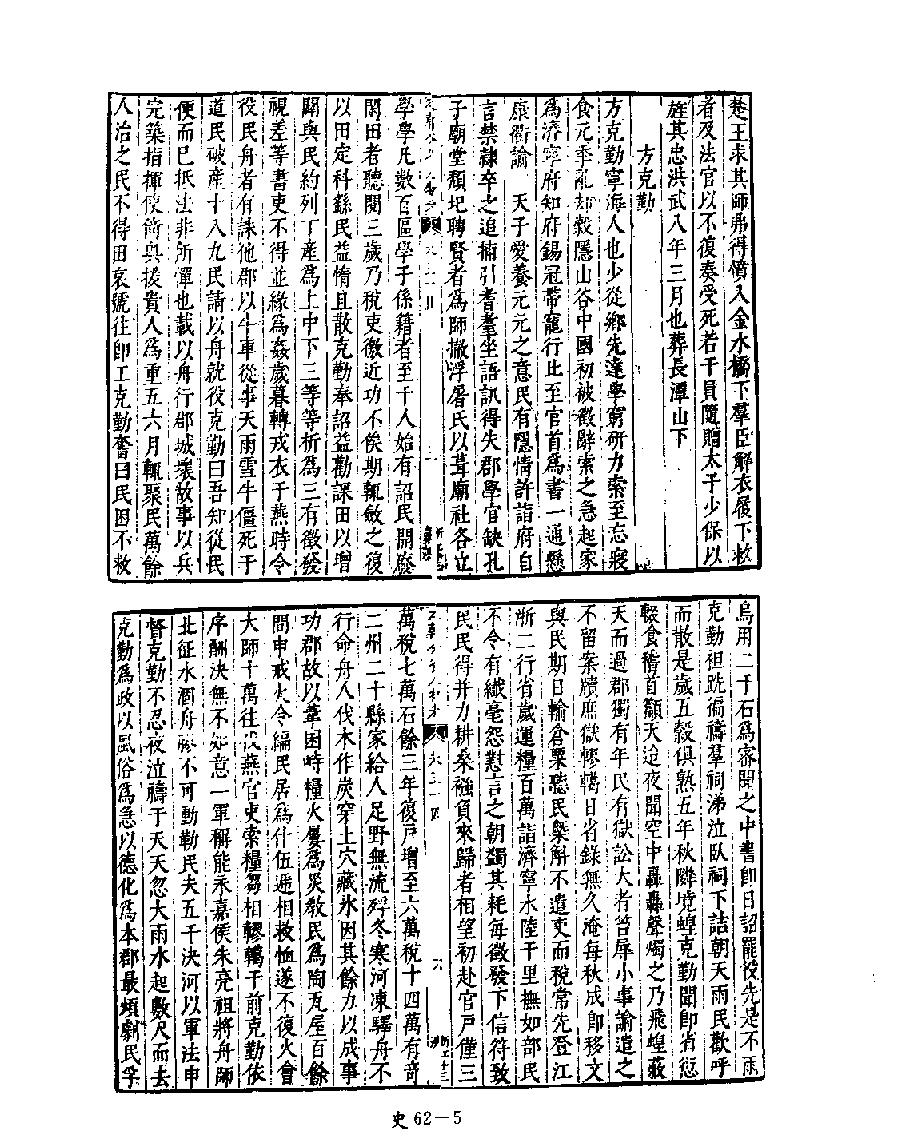 楚王求其師弗得憤入金水橋下羣臣解衣履下救
者及法官以不復奏受死若干員隨贈太子少保以
旌其忠洪武八年三月也葬長潭山下
方克勤
方克勤寧海人也少從鄉先達學窮研力索至忘寢
食元季亂却穀隱山谷中國初被徵辟索之急起家
爲濟寧府知府錫冠帶寵行比至官首爲書一通懸
康衢諭 天子愛養元元之意民有隱情許詣府自
言禁隸卒之追捕引耆耋坐語訊得失郡學官缺孔
子廟堂頹圮聘賢者爲師撤浮屠氏以葺廟社各立
學學凡數百區學子係籍者至千人始有詔民開廢
閑田者聽閱三歲乃稅吏徼近功不俟期輒斂之復
以田定科繇民益惰且散克勤奉詔益勸課田以增
闢與民約列丁產爲上中下三等等析爲三有徵發
視差等書吏不得並緣爲姦歲暮轉戎衣于燕時令
役民舟者有誅他郡以牛車從事天雨雪牛僵死于
道民破產十八九民請以舟就役克勤曰吾知從民
便而已抵法非所憚也載以舟行郡城壞故事以兵
完築指揮使啇與援貴人爲重五六月輒聚民萬餘
人治之民不得田哀號往卽工克勤奮曰民困不救
烏用二千石爲密聞之中書卽日詔罷役先是不雨
克勤袒跣徧禱羣祠涕泣臥祠下詰朝天雨民歡呼
而散是歲五穀俱熟五年秋隣境蝗克勤聞卽省愆
輟食稽首籲天迨夜聞空中轟轟聲燭之乃飛蝗蔽
天而過郡獨有年民有獄訟大者笞辱小事諭遣之
不留案牘庶獄轇轕日省錄無久淹每秋成卽移文
與民期日輸倉粟聽民槩斛不遣吏而稅常先登江
浙二行省歲運糧百萬詣濟寧水陸千里撫如部民
不令有纖毫怨懟言之朝蠲其耗每徵發下信符致
民民得并力耕桑襁負來歸者相望初赴官戶僅三
萬稅七萬石餘三年後戶增至六萬稅十四萬有奇
二州二十縣家給人足野無流殍冬寒河凍驛舟不
行命舟人伐木作炭穿土穴藏氷因其餘力以成事
功郡故以葦囷時糧火屢爲災敎民爲陶瓦屋百餘
間申戒火令編民居爲什伍遞相救恤遂不復火會
大師十萬往戍燕官吏索糧芻相轇轕于前克勤依
序酬決無不如意一軍稱能永嘉侯朱亮祖將舟師
北征水涸舟膠不可動勒民夫五千決河以軍法申
督克勤不忍夜泣禱于天天忽大雨水起數尺而去
克勤爲政以風俗爲急以德化爲本郡最煩劇民孚
史 62－5